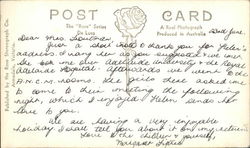 POST CARD
The "Rose" Series
De Luxe
A Real Photograph
Produced in Australia
Published by the Rose Stereograph Co.
22nd June.
Dear Mrs.
Just a short note to thank you for Helen's
address. I rang her as you suggested & we met.
She took me over Adelaide University & the Royal
Adelaide Hospital. Afterwards we went to the
rooms. The girls there asked me
to come to their meeting the following
night, which I enjoyed. Helen sends her
love to you.
We are having a very enjoyable
holiday. I shall tell you about it on my return.
Yours the children & yourself,
Margaret